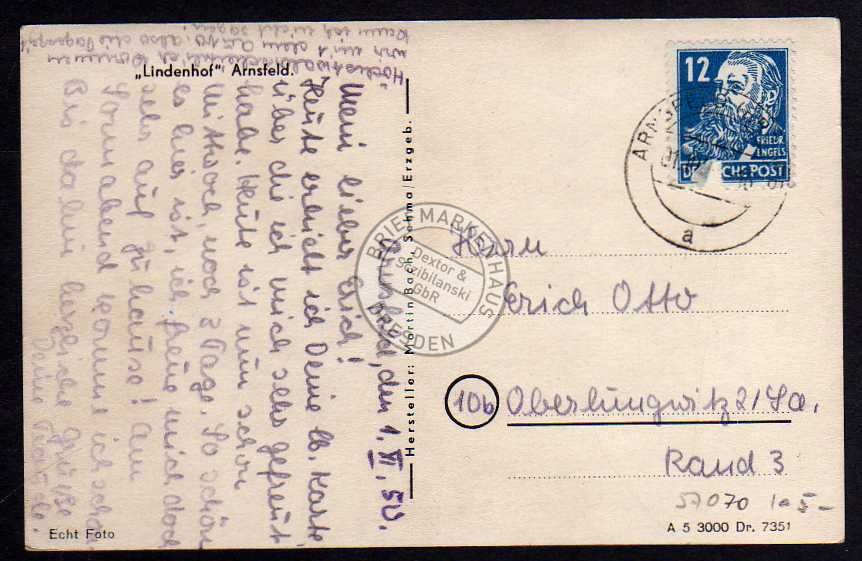 „Lindenhof" Arnsfeld.
Arnsfeld, den 1. XI. 50.
Mein lieber Erich!
Heute erhielt ich Deine lb. Karte
über die ich mich sehr gefreut
habe. Heute ist nun schon
Mittwoch, noch 2 Tage. So schön
es hier ist, ich freue mich doch
sehr auf zuhause! Am
Sonnabend komme ich schon.
Bis dahin herzliche Grüße
Deine
wir mit dem Auto. also die
kann ich nicht sagen.
Echt Foto
Hersteller: Martin Bach, Sehma/Erzgeb.
12
FRIEDR.
ENGELS
DEUTSCHE POST
ARNSFELD
a
BRIEFMARKENHAUS
Dextor &
Scibilanski
GbR
DRESDEN
Herrn
Erich Otto
10b Oberlungwitz 2/Sa.
Rand 3
57070
A 5 3000 Dr. 7351